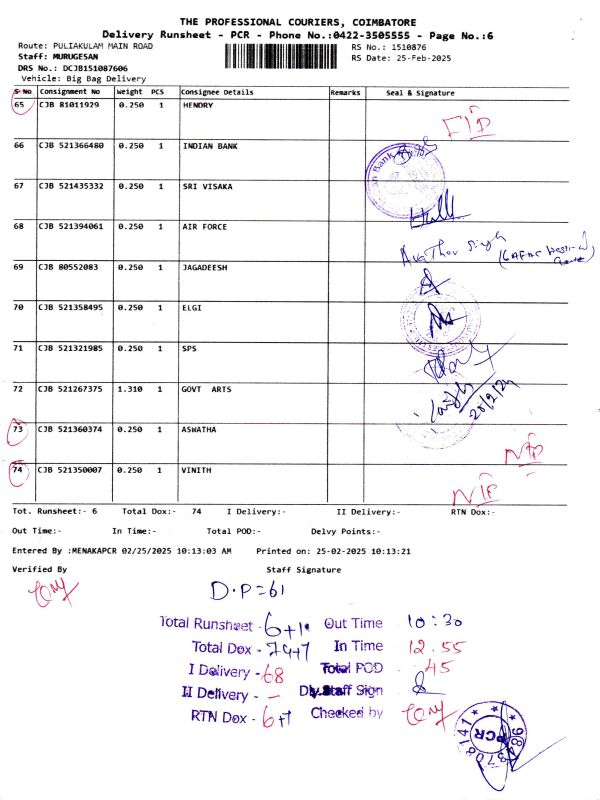 THE PROFESSIONAL COURIERS, COIMBATORE
Delivery Runsheet - PCR - Phone No.:0422-3505555 - Page No.:6
Route: PULIAKULAM MAIN ROAD
RS No.: 1510876
Staff: MURUGESAN
RS Date: 25-Feb-2025
DRS No.: DCJB151087606
Vehicle: Big Bag Delivery
S No Consignment No Weight PCS Consignee Details Remarks Seal & Signature
65 CJB 81011929 0.250 1 HENDRY
66 CJB 521366480 0.250 1 INDIAN BANK
67 CJB 521435332 0.250 1 SRI VISAKA
68 CJB 521394061 0.250 1 AIR FORCE
69 CJB 80552083 0.250 1 JAGADEESH
70 CJB 521358495 0.250 1 ELGI
71 CJB 521321985 0.250 1 SPS
72 CJB 521267375 1.310 1 GOVT ARTS
73 CJB 521360374 0.250 1 ASWATHA
74 CJB 521350007 0.250 1 VINITH
Tot. Runsheet:- 6 Total Dox:- 74 I Delivery:- II Delivery:- RTN Dox:-
Out Time:- In Time:- Total POD:- Delvy Points:-
Entered By :MENAKAPCR 02/25/2025 10:13:03 AM Printed on: 25-02-2025 10:13:21
Verified By Staff Signature
D.P=61
Total Runsheet - 6+1 Out Time 10:30
Total Dox - 74+7 In Time 12.55
I Delivery - 68 Total POD 45
II Delivery - — Dly.Staff Sign
RTN Dox - 6+7 Checked by
PCR